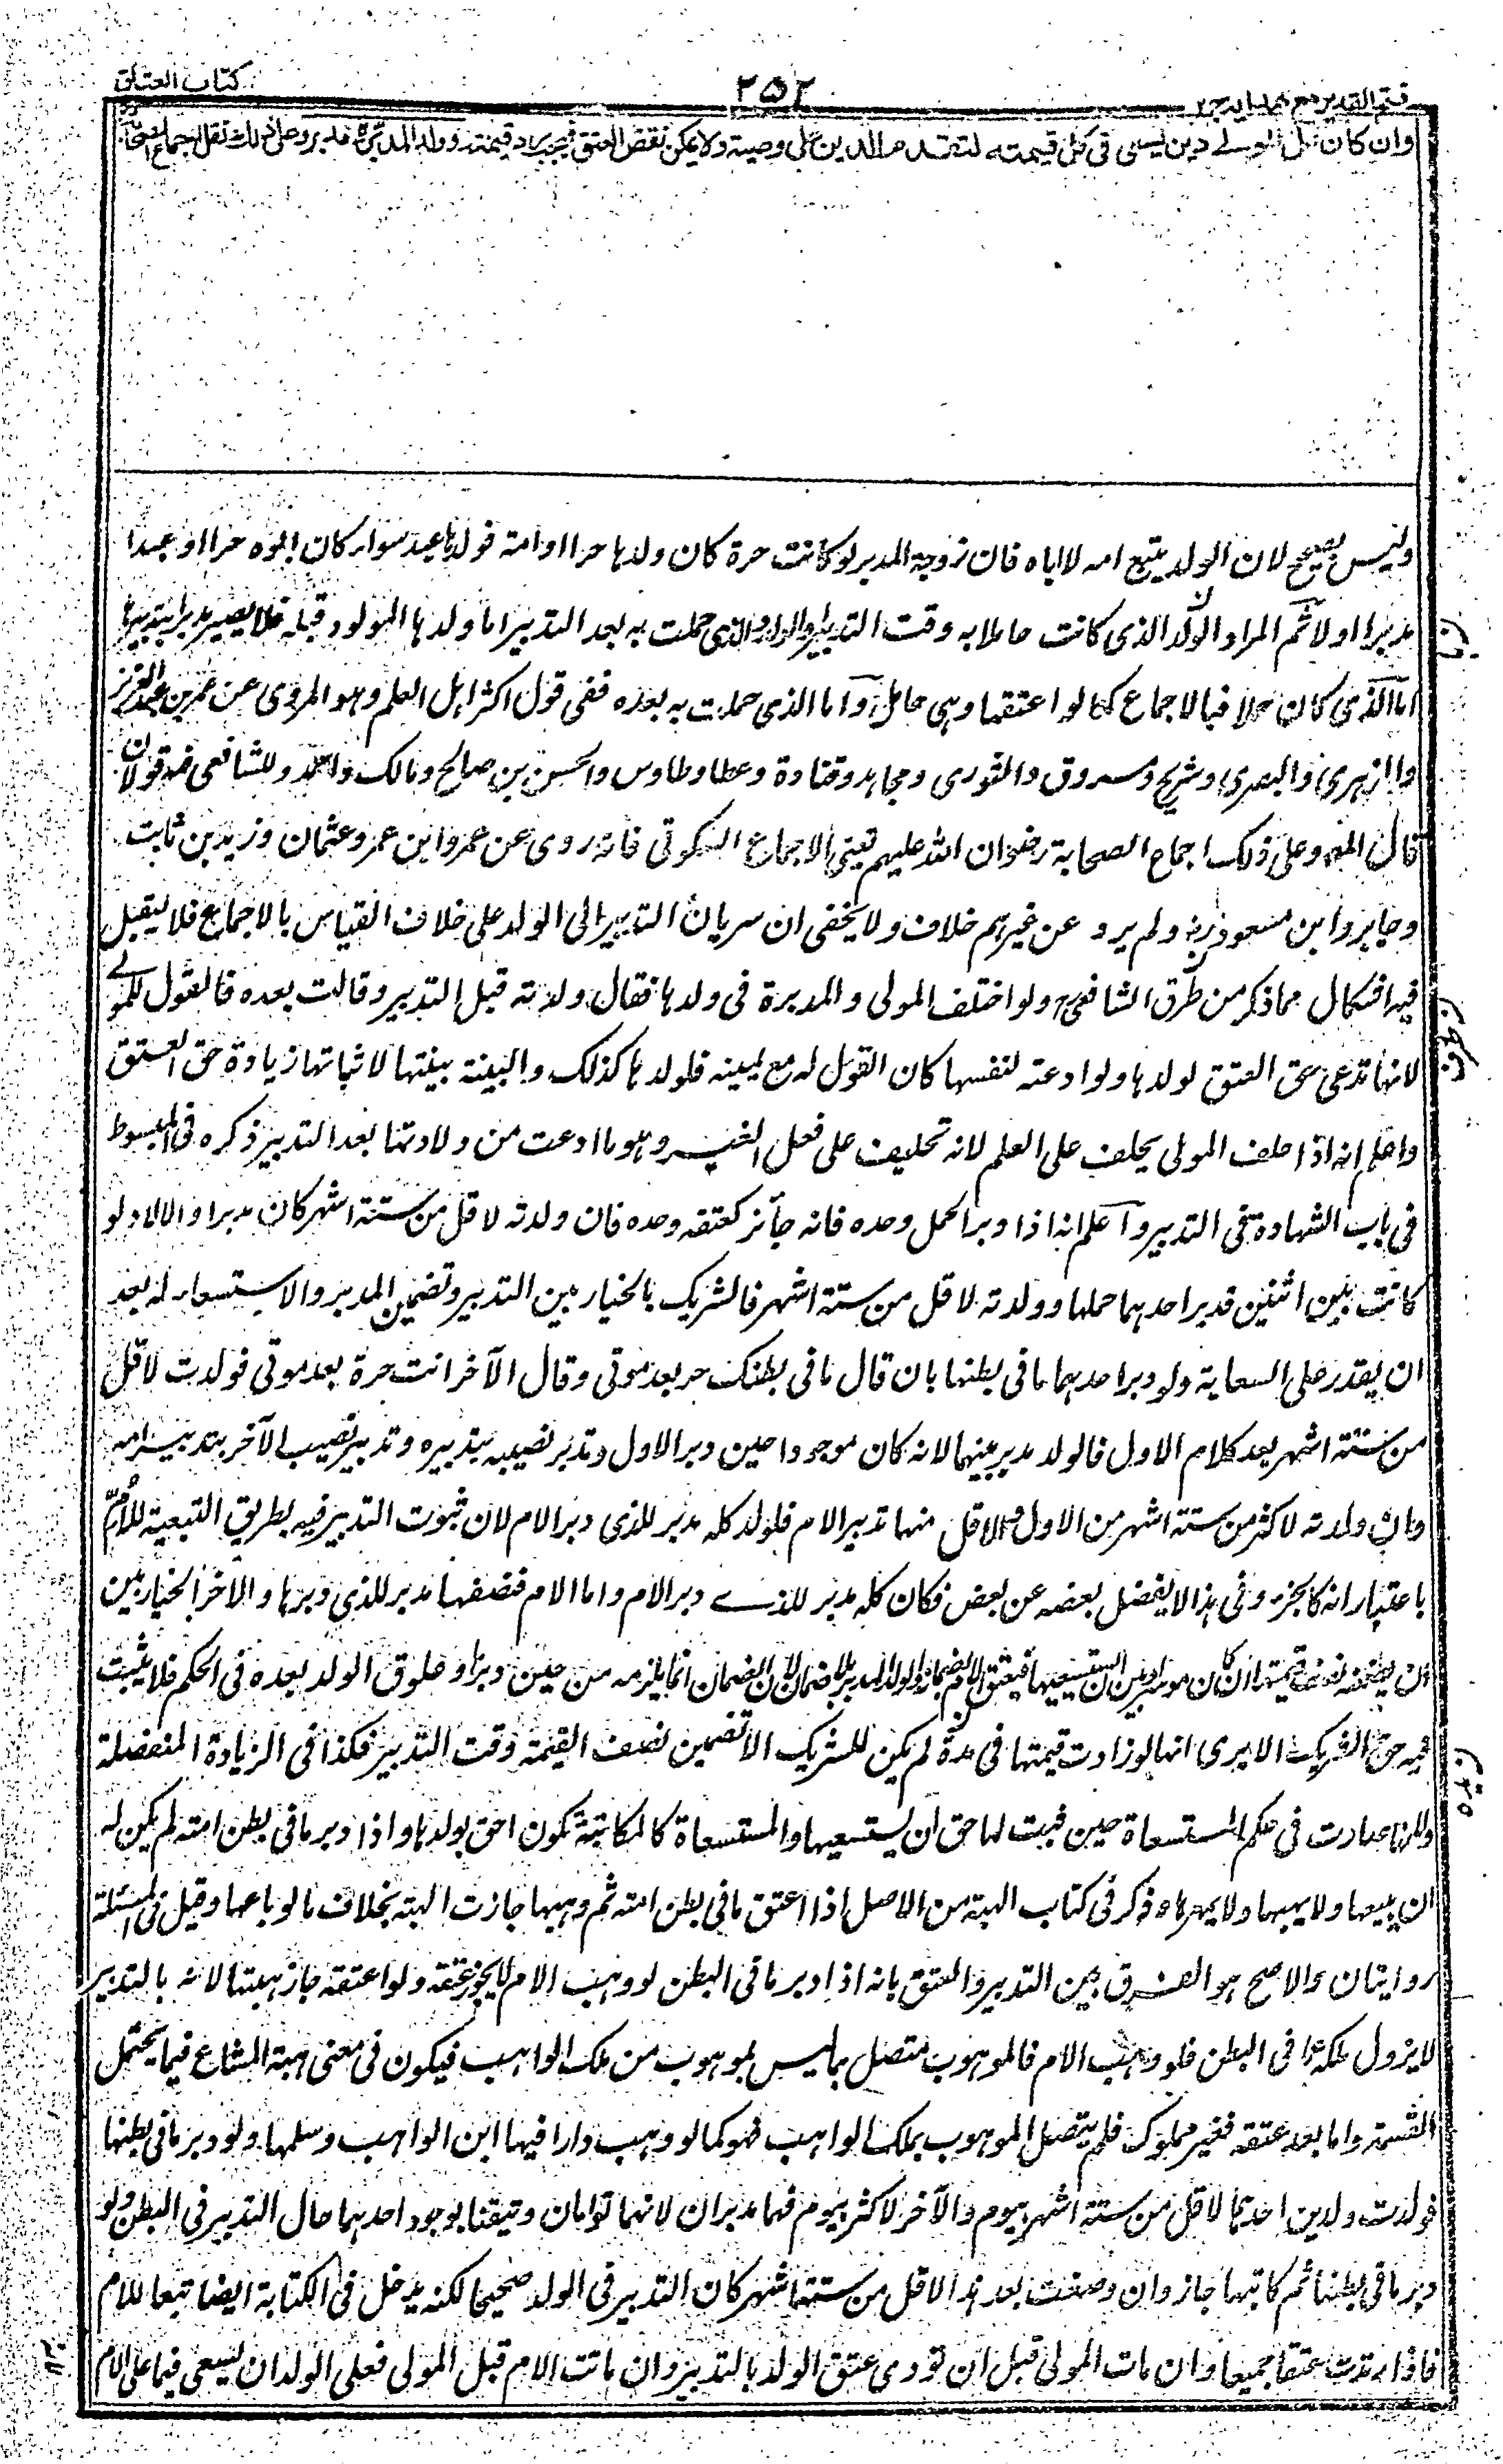 كتاب العتاق
٢٥٢
فتح القدير مع هدايه جز ٢
وان كان على المولى دين يسعى فى كل قيمته لتقدم الدين على وصية ولا يمكن نقض العتق فيجب رد قيمته وولد المدبرة مدبر وعلى ذلك نقل اجماع الصحابة
وليس بصحيح لان الولد يتبع امه لا اباه فان زوجة المدبر لو كانت حرة كان ولدها حرا او امة فولدها عبد سواء كان ابوه حرا او عبدا
مدبرا او لا ثم المراد الولد الذى كانت حاملا به وقت التدبير والولد الذى حملت به بعد التدبير اما ولدها المولود قبله فلا يصير مدبرا بتدبيرها
اما الذى كان حملا فبالاجماع كما لو اعتقها وهى حامل واما الذى حملت به بعده ففى قول اكثر اهل العلم وهو المروى عن عمر بن عبد العزيز
والزهرى والبصرى وشريح ومسروق والثورى ومجاهد وقتادة وعطا وطاوس والحسن بن صالح ومالك واحمد وللشافعى فيه قولان
قال المص وعلى ذلك اجماع الصحابة رضوان الله عليهم يعنى الاجماع السكوتى فانه روى عن عمر وابن عمر وعثمان وزيد بن ثابت
وجابر وابن مسعود رض ولم يرد عن غيرهم خلاف ولا يخفى ان سريان التدبير الى الولد على خلاف القياس بالاجماع فلا يقبل
فيه اشكال مما ذكر من طرق الشافعى ولو اختلف المولى والمدبرة فى ولدها فقال ولدته قبل التدبير وقالت بعده فالقول للمولى
لانها تدعى حق العتق لولدها ولو ادعته لنفسها كان القول له مع يمينه فلولدها كذلك والبينة بينتها لاثباتها زيادة حق العتق
واعلم انه اذا حلف المولى يحلف على العلم لانه تحليف على فعل الغير وهو ما ادعت من ولادتها بعد التدبير ذكره فى المبسوط
فى باب الشهادة فى التدبير واعلم انه اذا دبر الحمل وحده فانه جائز كعتقه وحده فان ولدته لاقل من ستة اشهر كان مدبرا والا لا ولو
كانت بين اثنين فدبر احدهما حملها وولدته لاقل من ستة اشهر فالشريك بالخيار بين التدبير وتضمين المدبر والاستسعاء له بعد
ان يقدر على السعاية ولو دبر احدهما ما فى بطنها بان قال ما فى بطنك حر بعد موتى وقال الآخر انت حرة بعد موتى فولدت لاقل
من ستة اشهر بعد كلام الاول فالولد مدبر بينهما لانه كان موجودا حين دبر الاول وتدبر نصيبه بتدبيره وتدبير نصيب الآخر بتدبير امه
وان ولدته لاكثر من ستة اشهر من الاول ولاقل منها تدبير الام فالولد كله مدبر للذى دبر الام لان ثبوت التدبير فيه بطريق التبعية للام
باعتبار انه كالجزء وفى هذا لا يفضل بعضه عن بعض فكان كله مدبر للذى دبر الام واما الام فنصفها مدبر للذى دبرها والاخر الخيار بين
ان يضمنه نصف قيمتها ان كان موسرا وبين ان يستسعيها فيعتق الام بضمان والولد المدبر بلا ضمان لان الضمان انما يلزمه من حين دبر وعلوق الولد بعده فى الحكم فلا يثبت
فيه حق الشريك الا يرى انها لو زادت قيمتها فى مدة لم يكن للشريك الا تضمين نصف القيمة وقت التدبير فكذا فى الزيادة المنفصلة
ولانها صارت فى حكم المستسعاة حين ثبت لها حق ان يستسعيها والمستسعاة كالمكاتبة تكون احق بولدها واذا دبر ما فى بطن امته لم يكن له
ان يبيعها ولا يهبها ولا يمهرها وذكر فى كتاب الهبة من الاصل اذا اعتق ما فى بطن امته ثم وهبها جازت الهبة بخلاف ما لو باعها وقيل فى المسئلة
روايتان والاصح هو الفرق بين التدبير والعتق بانه اذا دبر ما فى البطن لو وهب الام لا يجوز عتقه ولو اعتقه جاز هبتها لانه بالتدبير
لا يزول ملكه عما فى البطن فلو وهب الام فالموهوب متصل بما ليس بموهوب من ملك الواهب فيكون فى معنى هبة المشاع فيما يحتمل
القسمة واما بعد عتقه فغير مملوك فلم يتصل الموهوب بملك الواهب فهو كما لو وهب دارا فيها ابن الواهب وسلمها ولو دبر ما فى بطنها
فولدت ولدين احدهما لاقل من ستة اشهر بيوم والآخر لاكثر بيوم فهما مدبران لانهما توامان وتيقنا بوجود احدهما حال التدبير فى البطن ولو
دبر ما فى بطنها ثم كاتبها جاز وان وضعت بعد هذا لاقل من ستة اشهر كان التدبير فى الولد صحيحا لكنه يدخل فى الكتابة ايضا تبعا للام
فاذا ادت عتقا جميعا وان مات المولى قبل ان تودى عتق الولد بالتدبير وان ماتت الام قبل المولى فعلى الولد ان يسعى فيما على الام